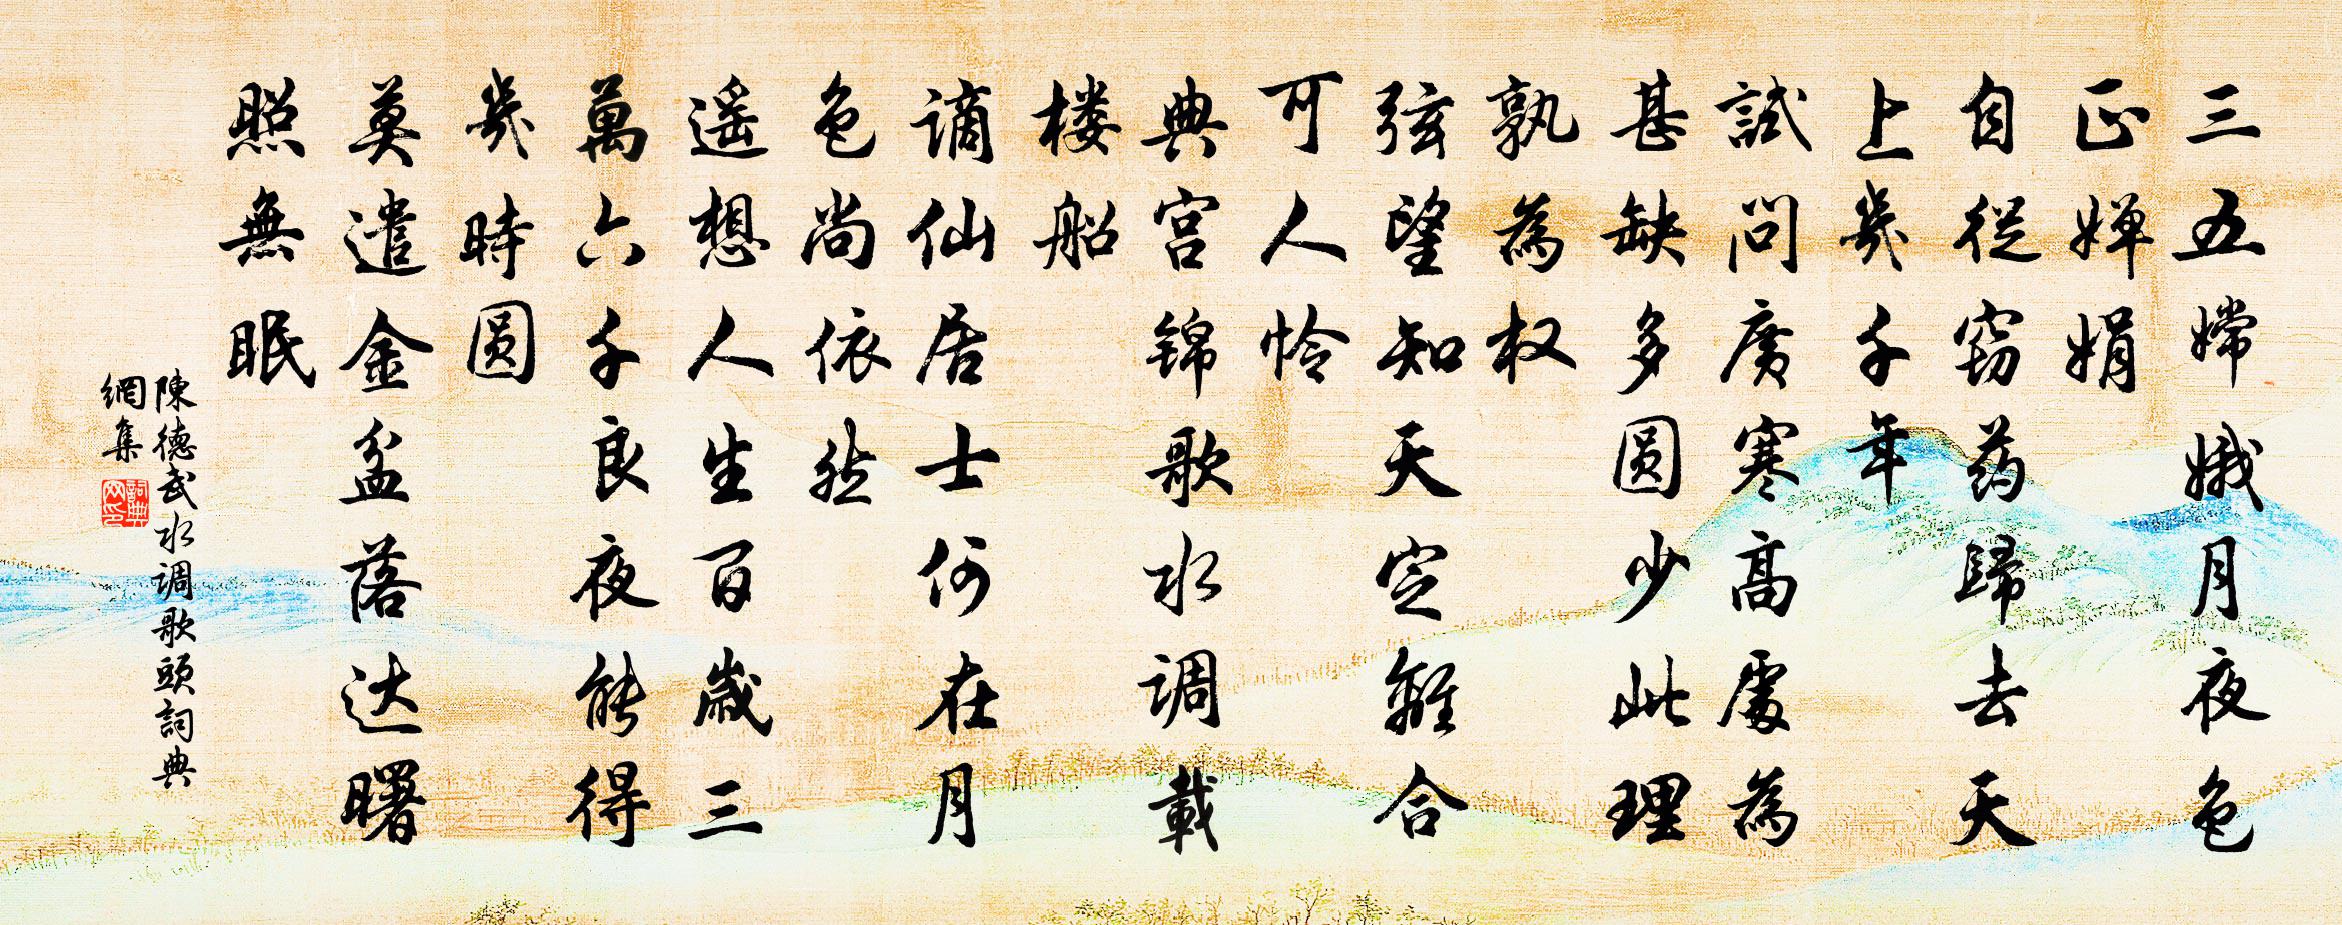 三五嫦娥月夜色
正婵娟
自從窃药歸去天
上幾千年
試問廣寒高處為
甚缺多圆少此理
孰為权
弦望知天定離合
可人怜
典宫锦歌水调載
楼船
谪仙居士何在月
色尚依然
遥想人生百歲三
萬六千良夜能得
幾時圆
莫遣金盆落达曙
照無眠
陳德武水调歌頭詞典
網集
詞典网印